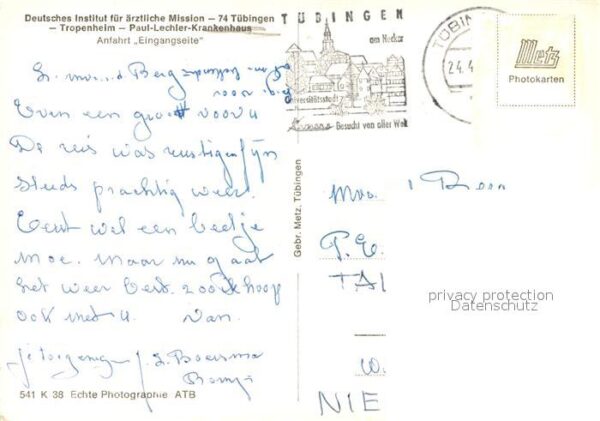 Deutsches Institut für ärztliche Mission – 74 Tübingen
– Tropenheim – Paul-Lechler-Krankenhaus
Anfahrt „Eingangseite"
TÜBINGEN
am Neckar
Universitätsstadt
Besucht von aller Welt
TÜBIN
24.4
Metz
Photokarten
Berg
Even een groet voor u
De reis was rustig en fijn
Steeds prachtig weer.
wel een beetje
moe. Maar nu gaat
het weer best. zoo ik hoop
ook met u. van.
J. S. Boersma
Gebr. Metz, Tübingen
P.E.
TAI
W.
NIE
privacy protection
Datenschutz
541 K 38 Echte Photographie ATB